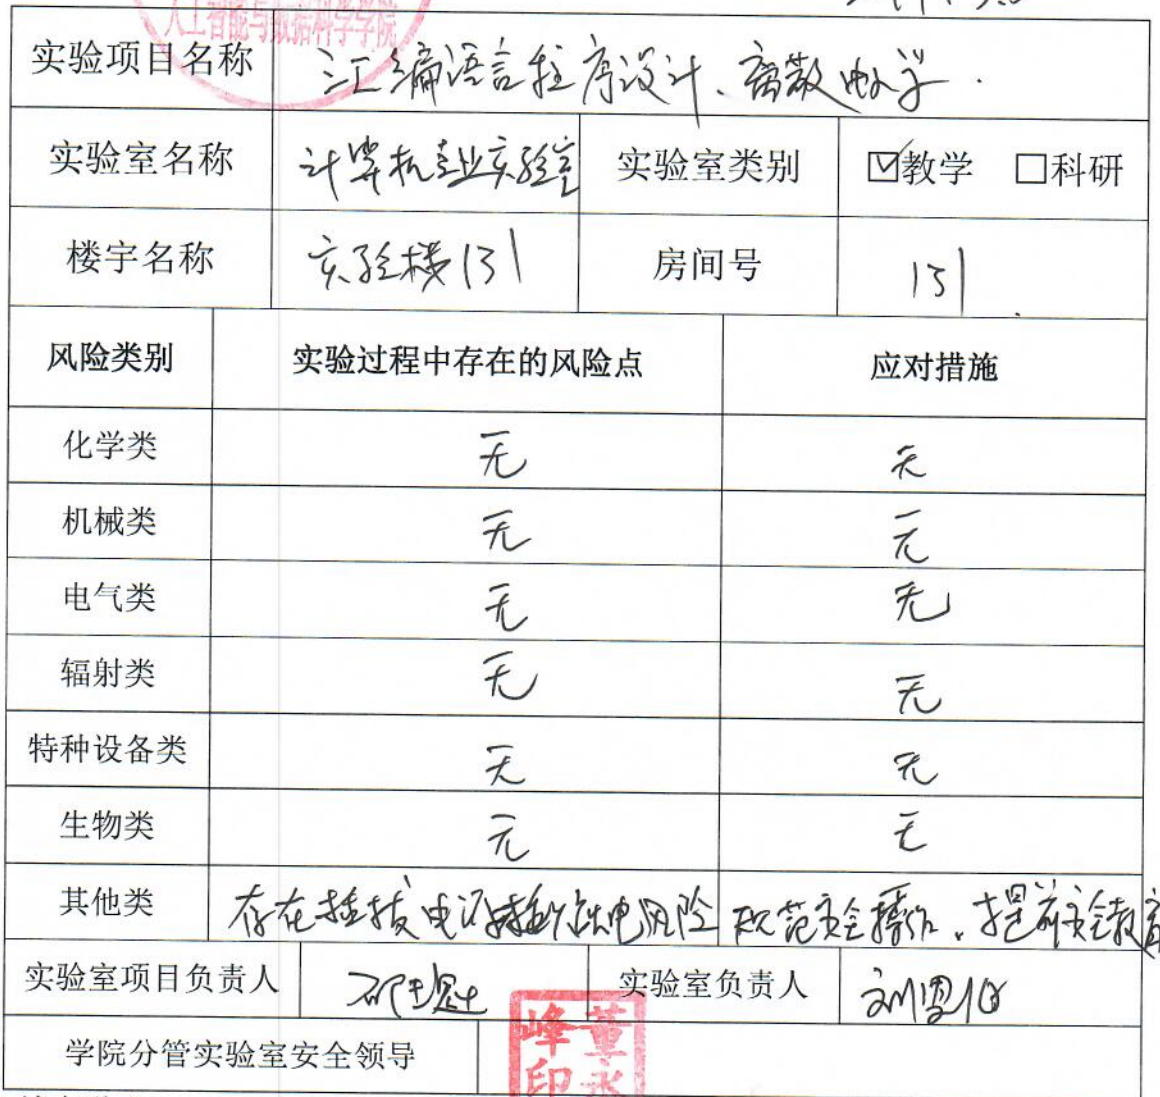 人工智能与数据科学学院
实验项目名称 汇编语言程序设计、离散数学.
实验室名称 计算机专业实验室 实验室类别 ☑教学 □科研
楼宇名称 实验楼131 房间号 131
风险类别 实验过程中存在的风险点 应对措施
化学类 无 无
机械类 无 无
电气类 无 无
辐射类 无 无
特种设备类 无 无
生物类 无 无
其他类 存在插拔电源插触电风险 规范安全操作、提前安全教育
实验室项目负责人 实验室负责人
学院分管实验室安全领导 董永峰印